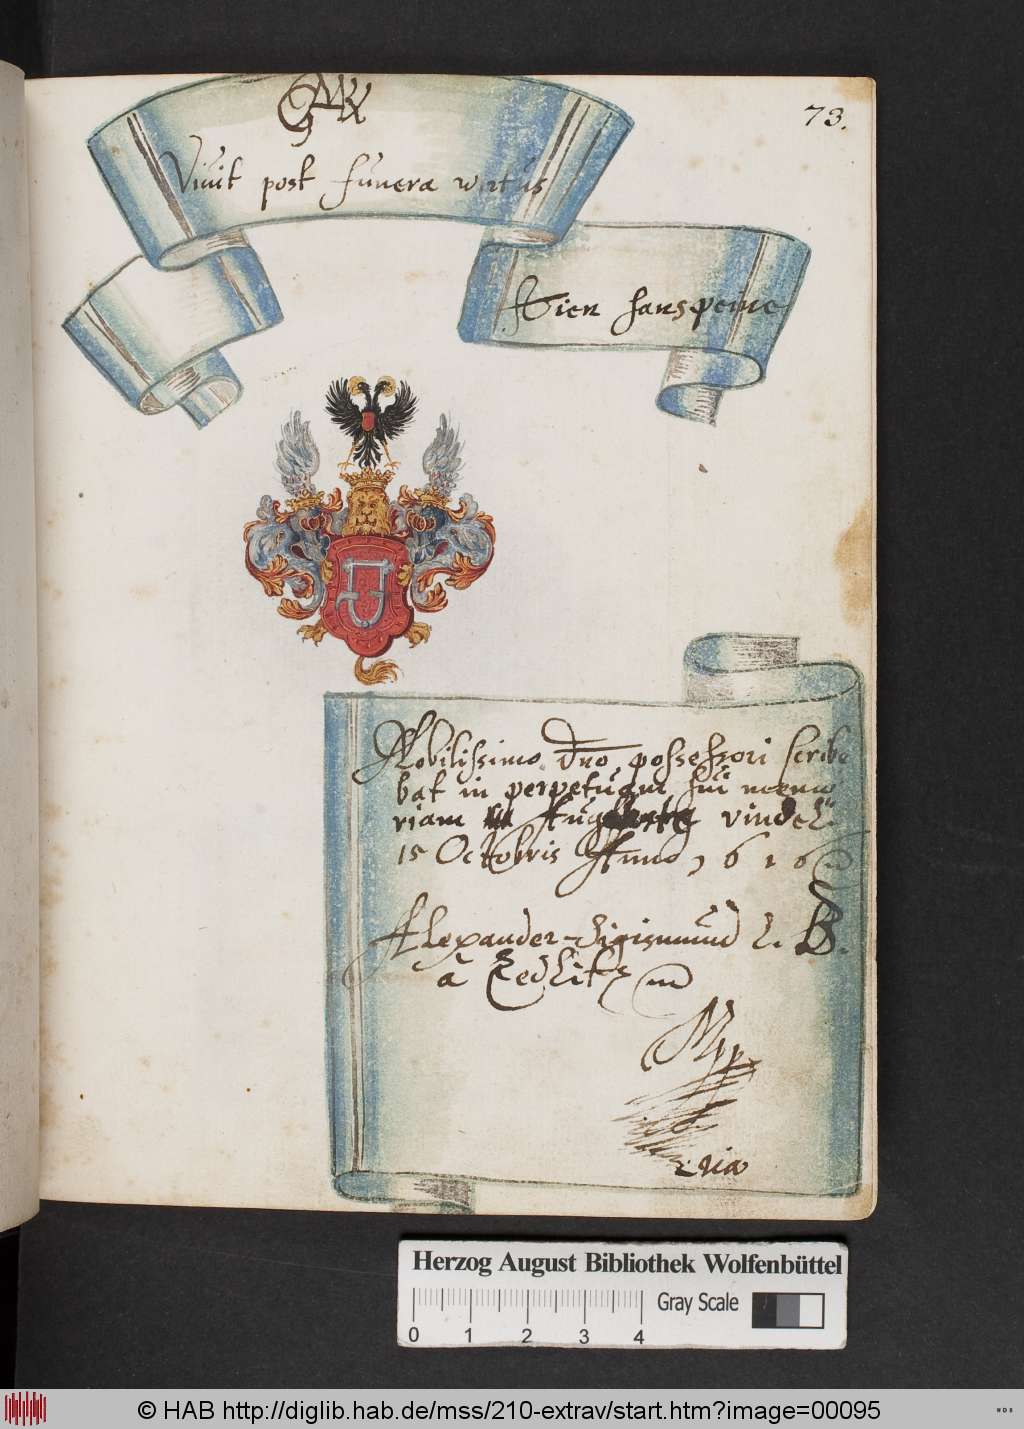 73.
Viuit post funera wirtus
Rien sans peine
Nobilissimo Dno possessori scribe
bat in perpetuam sui memo
riam Augustae vindel:
15 Octobris Anno 1616
Alexander Sigismund L. B.
à Zedlitz
Mpp
ria
Herzog August Bibliothek Wolfenbüttel
Gray Scale
0 1 2 3 4
© HAB http://diglib.hab.de/mss/210-extrav/start.htm?image=00095